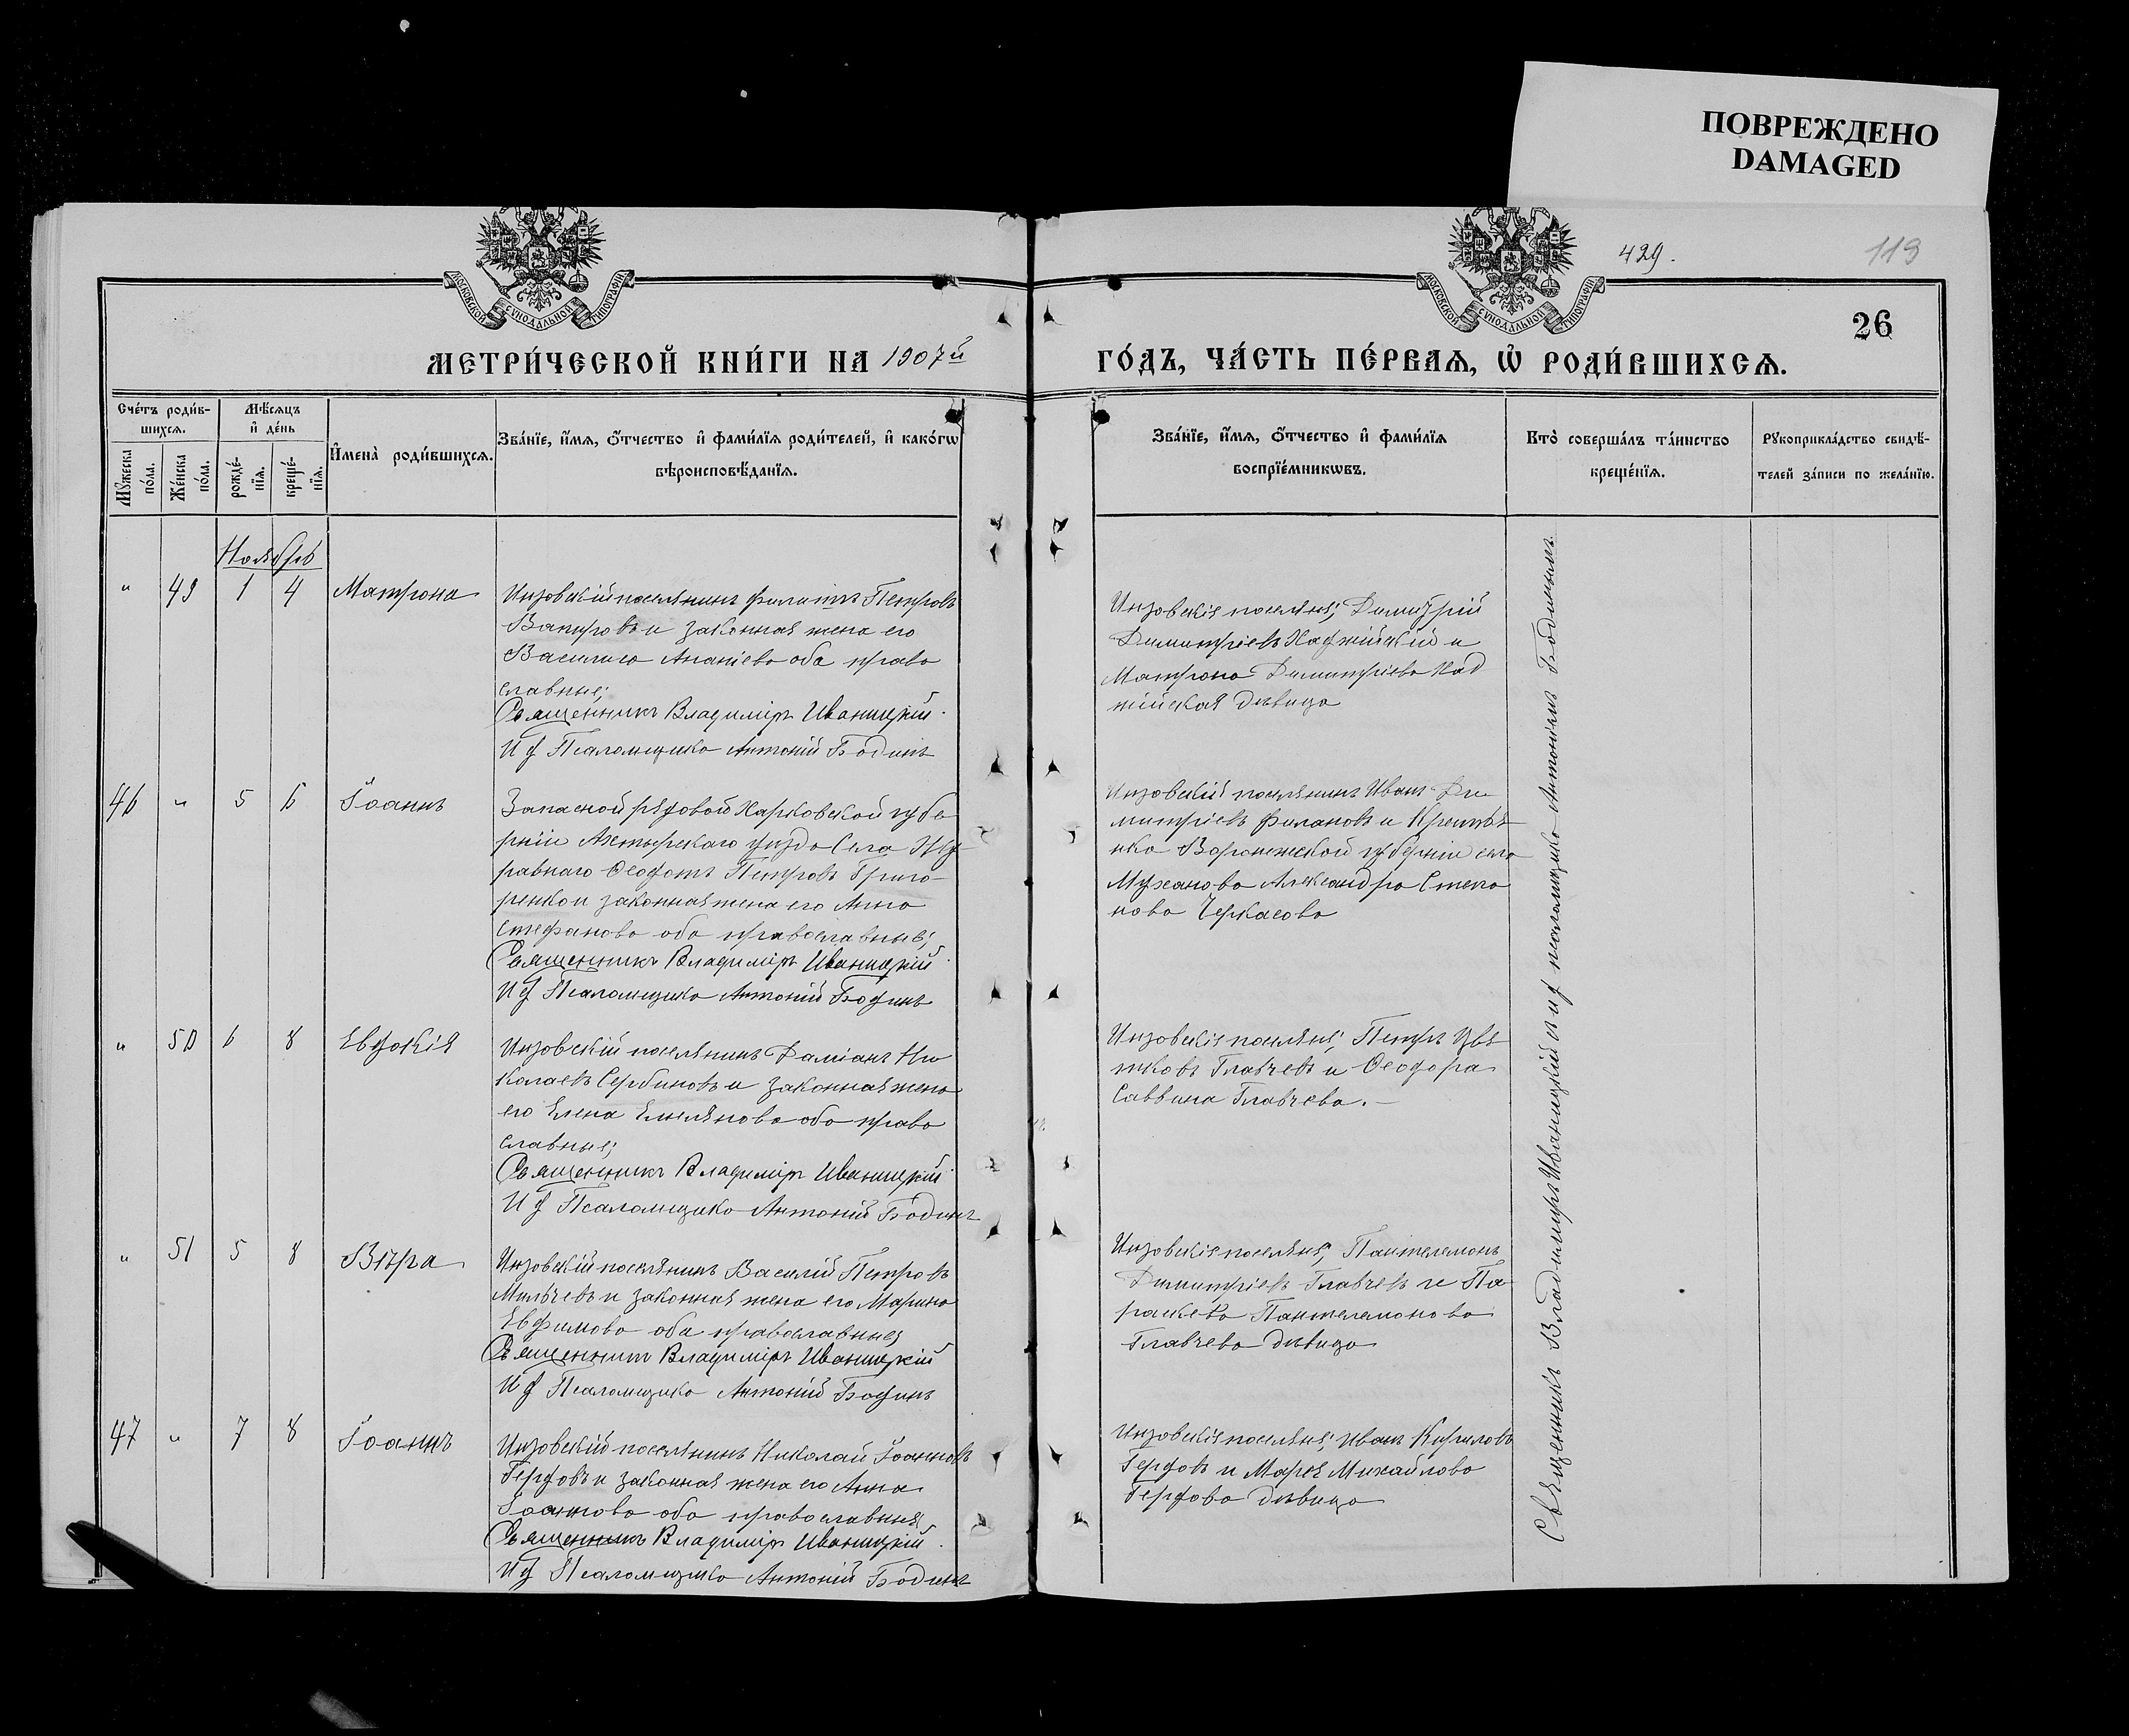 ПОВРЕЖДЕНО
DAMAGED
МОСКОВСКОЙ СѴНОДАЛЬНОЙ ТИПОГРАФІИ
МОСКОВСКОЙ СѴНОДАЛЬНОЙ ТИПОГРАФІИ
429.
119
26
МЕТРИ́ЧЕСКОЙ КНИ́ГИ НА 1907й
ГО́ДЪ, ЧА́СТЬ ПЕ́РВАѦ, Ѽ РОДИ́ВШИХСѦ.
Сче́тъ роди́в-
шихсѧ.
Мꙋ́жеска по́ла.
Же́нска по́ла.
Мѣ́сѧцъ
и҆ де́нь
рожде́-
нїѧ.
креще́-
нїѧ.
И҆мена̀ роди́вшихсѧ.
Зва́нїе, и҆́мѧ, ѻ҆́тчество и҆ фами́лїѧ роди́телей, и҆ како́гѡ
вѣроисповѣ́данїѧ.
Зва́нїе, и҆́мѧ, ѻ҆́тчество и҆ фами́лїѧ
воспрїе́мникѡвъ.
Кто̀ соверша́лъ та́инство
креще́нїѧ.
Рꙋкоприкла́дство свидѣ́-
телей за́писи по жела́нїю.
Ноябрь
" 49 1 4 Матрона
Инзовскій поселянинъ Филиппъ Петровъ
и законная жена его
Василиса Ананіева оба право
славные;
Священникъ Владиміръ Иваницкій.
И д Псаломщика Антоній Бодинъ
Инзовскіе поселяне; Димитрій
Димитріевъ Хаджійскій и
Матрона Димитріева Хад
жійская дѣвица
46 " 5 6 Іоаннъ
Запасной рядовой Харьковской губе
рніи Ахтырскаго уѣзда Села Жу
равнаго Ѳеодотъ Петровъ Григо-
ренко и законная жена его Анна
Стефанова оба православные;
Священникъ Владиміръ Иваницкій.
И д Псаломщика Антоній Бодинъ
Инзовскій поселянинъ Иванъ Ди
митріевъ Филановъ и Крестья
нка Воронежской губерніи села
Александра Степа
нова Черкасова
" 50 6 8 Евдокія
Инзовскій поселянинъ Даміанъ Ни
колаевъ Сербиновъ и законная жена
его Елена Емельянова оба право
славные;
Священникъ Владиміръ Иваницкій
И д Псаломщика Антоній Бодинъ
Инзовскіе поселяне; Петръ Цвѣ
тковъ Главчевъ и Ѳеодора
Саввина Главчева.-
" 51 5 8 Вѣра
Инзовскій поселянинъ Василій Петровъ
Мильчевъ и законная жена его Марина
Евфимова оба православные;
Священникъ Владиміръ Иваницкій
И д Псаломщика Антоній Бодинъ
Инзовскіе поселяне; Пантелемонъ
Димитріевъ Главчевъ и Па
раскева Пантелемонова
Главчева дѣвица
47 " 7 8 Іоаннъ
Инзовскій поселянинъ Николай Іоанновъ
Герговъ и законная жена его Анна
Іоаннова оба православные;
Священникъ Владиміръ Иваницкій.
И д Псаломщика Антоній Бодинъ
Инзовскіе поселяне; Иванъ Кириловъ
Герговъ и Марія Михайлова
Гергова дѣвица
Священникъ Владимиръ Иваницкій и и д псаломщика Антоніемъ Бодинымъ